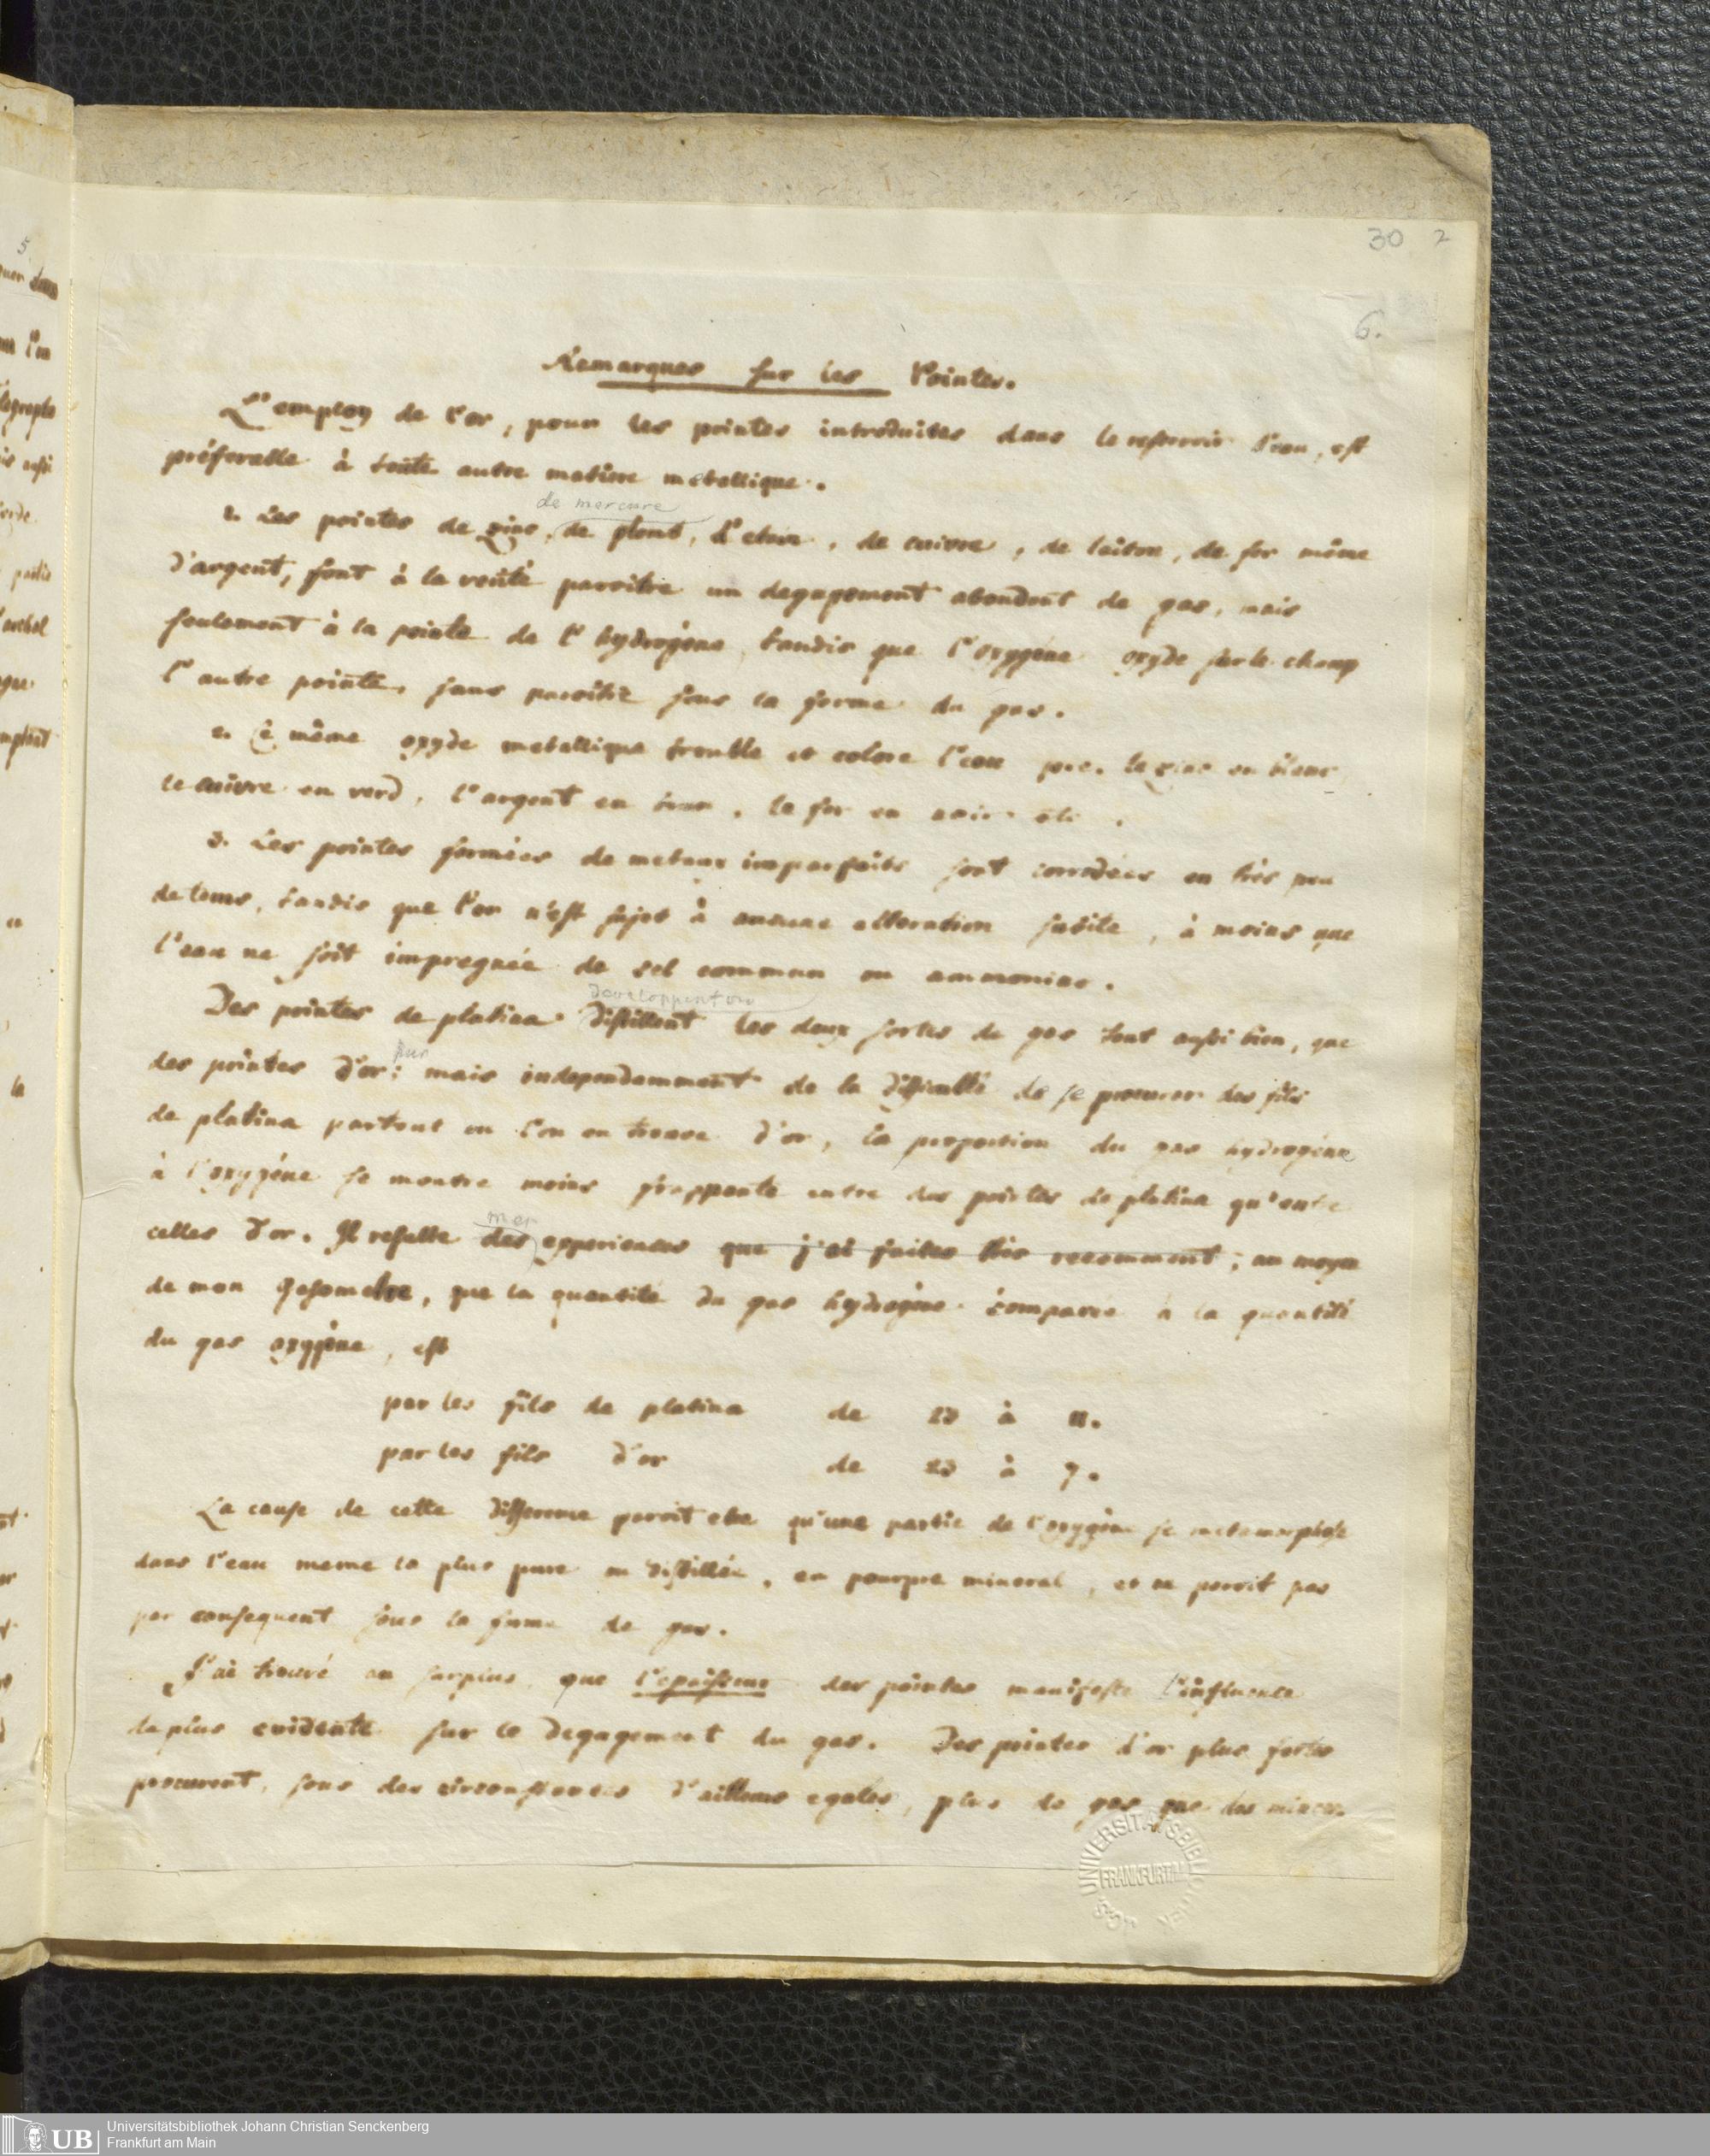 30 2
6.
Remarques sur les Pointes.
L'employ de l'or, pour les pointes introduites dans le reservoir d'eau, est
préferable à toute autre matiere metallique.
de mercure
1. Les pointes de zinc, de plomb, d'etain, de cuivre, de laiton, de fer même
d'argent, font à la verité paroitre un degagement abondant de gas, mais
seulement à la pointe de l'hydrogène, tandis que l'oxygène oxyde sur le champ
l'autre pointe, sans paroitre sous la forme du gas.
2. Ce même oxyde metallique trouble et colore l'eau le zinc en blanc,
le cuivre en verd, l'argent en brun, le fer en noir etc.
3. Les pointes formées de metaux imparfaits sont corrodées en très peu
de tems, tandis que l'or n'est sujet à aucune alteration subite, à moins que
l'eau ne soit impregnée de sel commun ou ammoniac.
developpent
Des pointes de platina distillent les deux sortes de gas tout aussi bien, que
pur
des pointes d'or: mais independamment de la difficulté de se procurer des fils
de platina partout ou l'on en trouve d'or, la proportion du gas hydrogène
à l'oxygène se montre moins frappante entre des pointes de platina qu'entre
mes
celles d'or. Il resulte des experiences que j'ai faites très recemment; au moyen
de mon gasometre, que la quantité du gas hydrogène comparée à la quantité
du gas oxygène, est
par les fils de platina de 23 à 11.
par les fils d'or de 23 à 7.
La cause de cette difference paroit etre qu'une partie de l'oxygène se metamorphose
dans l'eau meme la plus pure ou distillée, en pourpre mineral, et ne paroit pas
par consequent sous la forme de gas.
J'ai trouvé au surplus, que l'epaisseur des pointes manifeste l'influence
la plus evidente sur le degagement du gas. Des pointes d'or plus fortes
procurent, sous des circonstances d'ailleurs egales, plus de gas que des minces.
UNIVERSITÄTSBIBLIOTHEK
FRANKFURT/M.
UB
Universitätsbibliothek Johann Christian Senckenberg
Frankfurt am Main